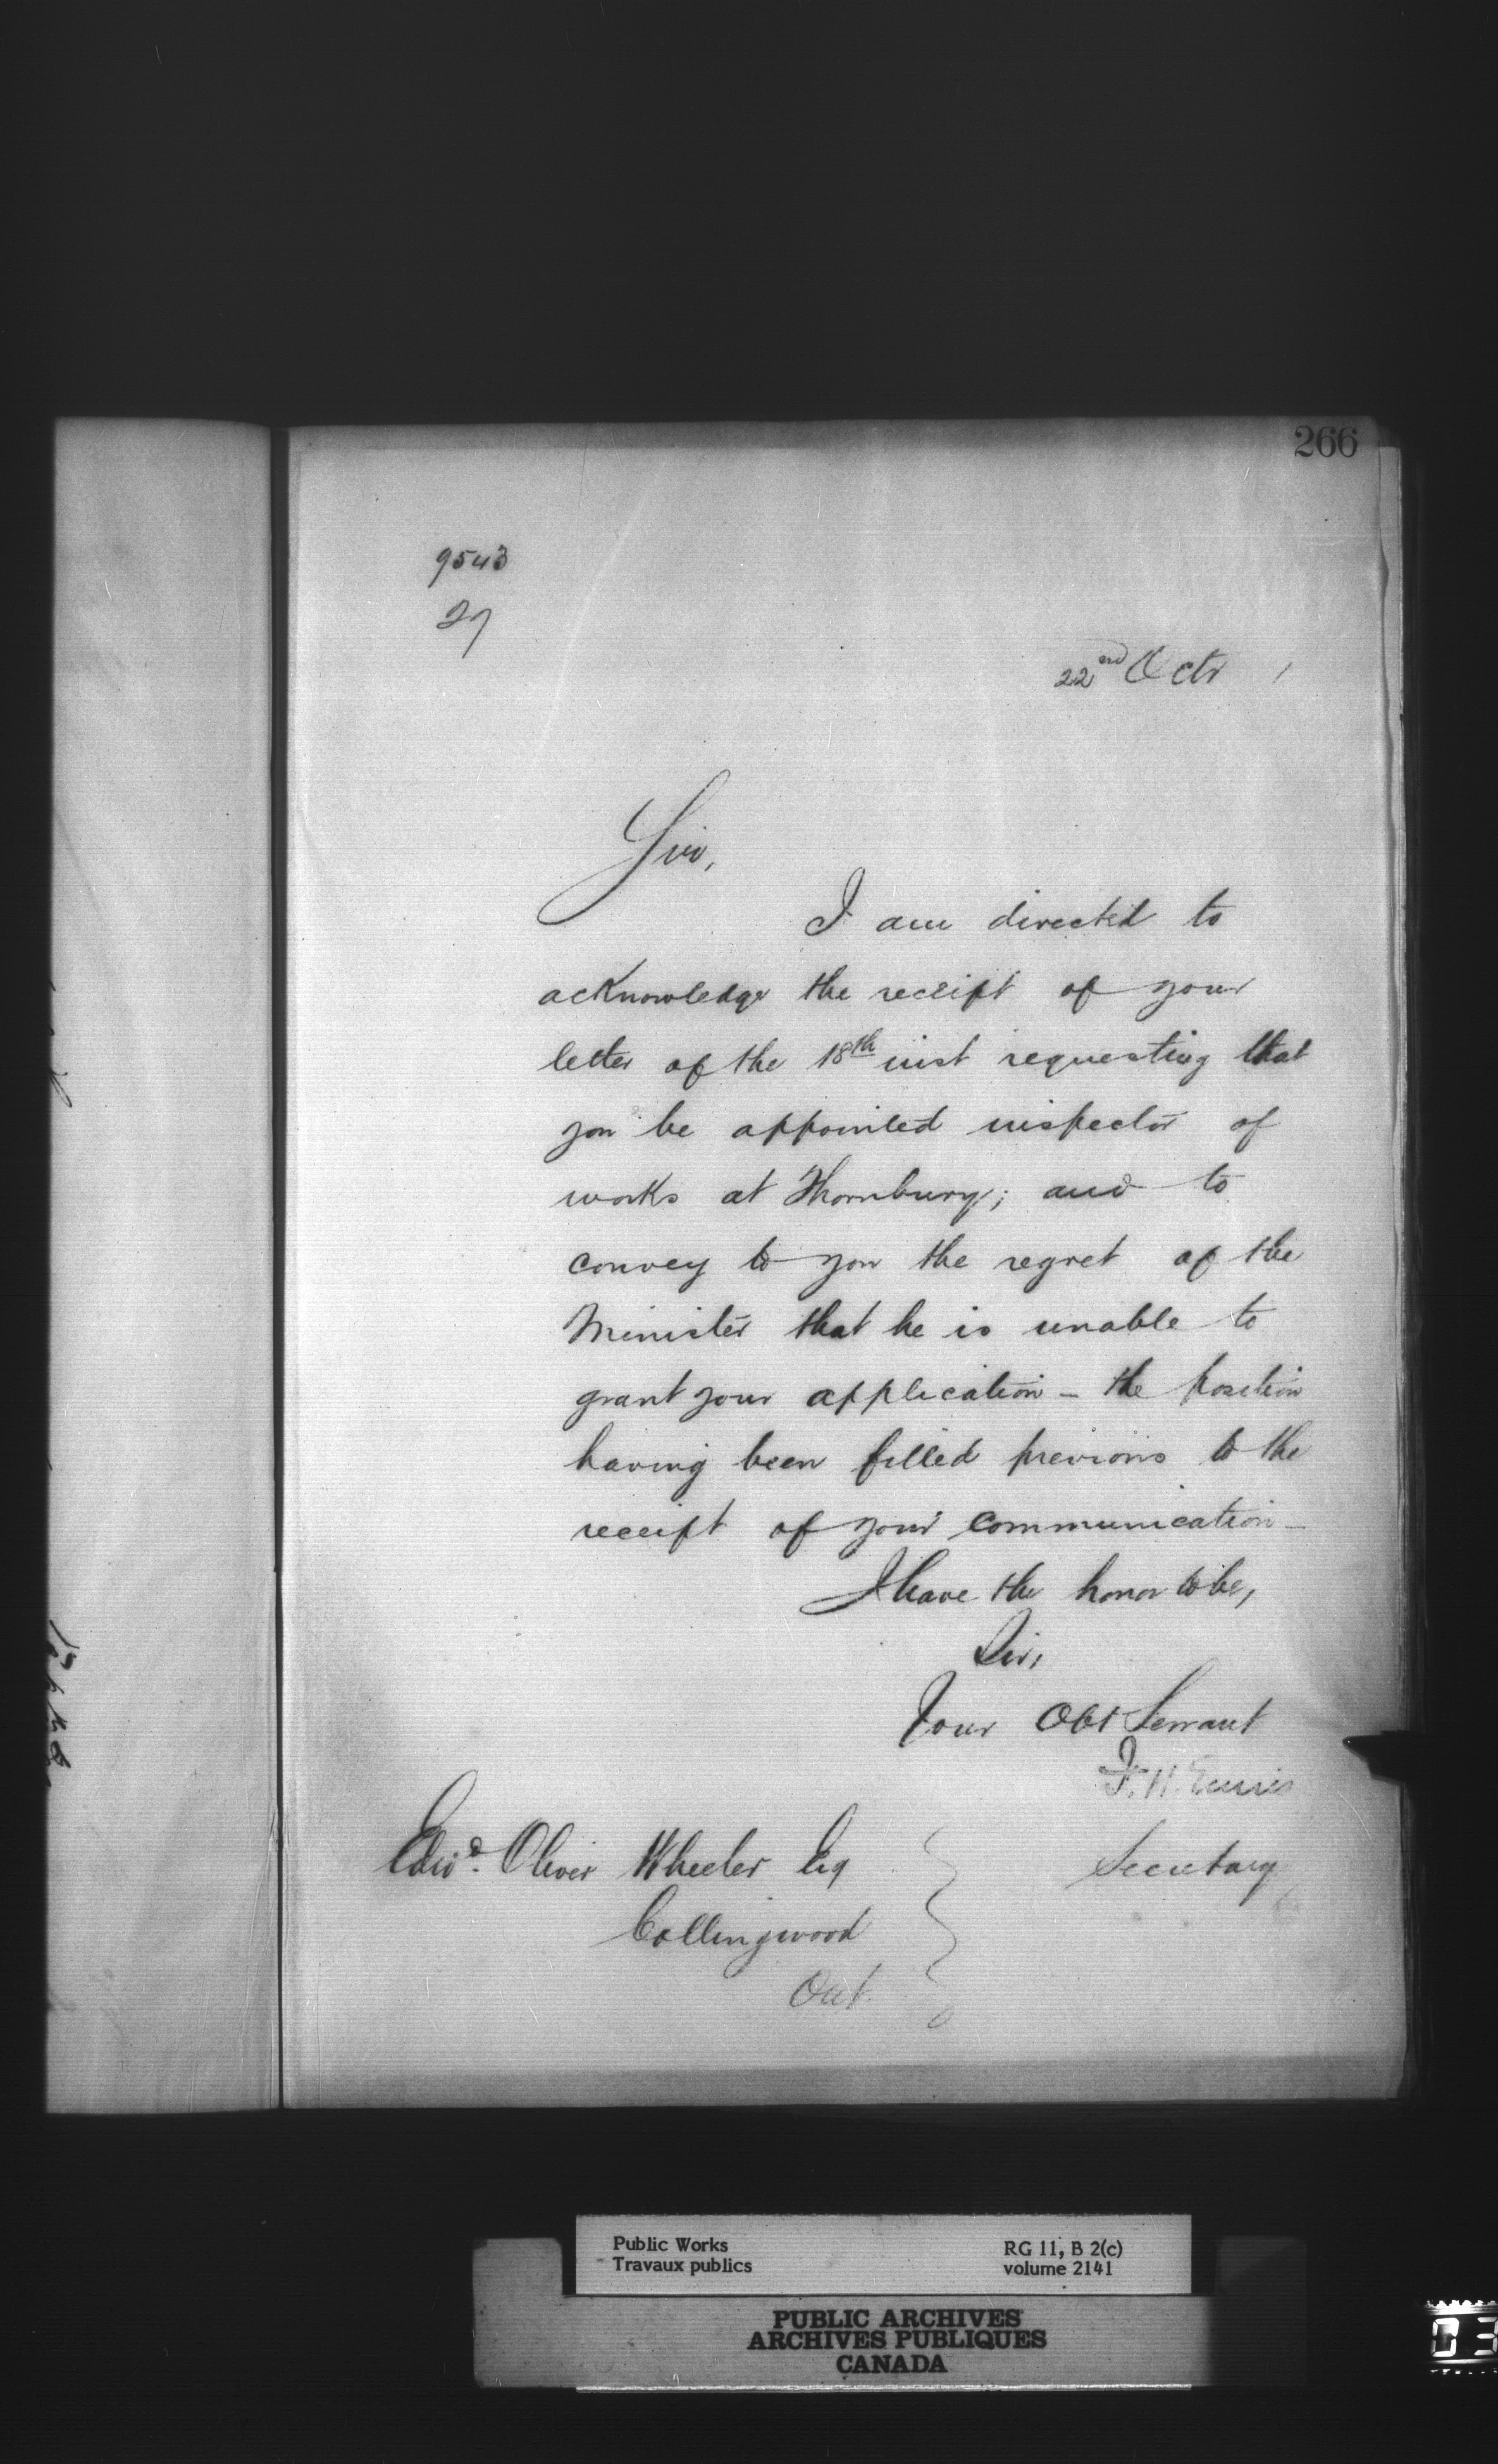 266
9543
27
22nd Octr
Sir,
I am directed to
acknowledge the receipt of your
letter of the 18th inst requesting that
you be appointed inspector of
works at Thornbury; and to
convey to you the regret of the
Minister that he is unable to
grant your application - the position
having been filled previous to the
receipt of your communication -
I have the honor to be,
Sir,
Your Obt Servant
F. H. Ennis
Secretary
Edwd. Oliver Wheeler Esq
Collingwood
Ont.
Public Works
Travaux publics
RG 11, B 2(c)
volume 2141
PUBLIC ARCHIVES
ARCHIVES PUBLIQUES
CANADA
03